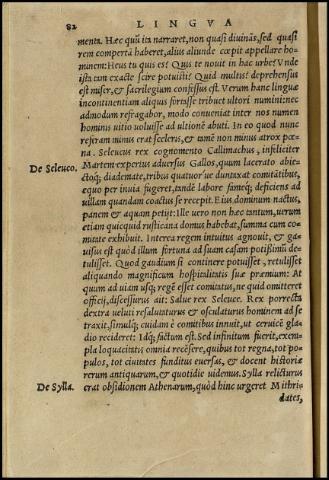 82 LINGVA
menta. Hæc quũ ita narraret, non quasi diuinãs, sed quasi
rem compertã haberet, alius aliunde cœpit appellare ho-
minem: Heus tu quis es? Quis te nouit in hac urbe? Vnde
ista tam exacte scire potuisti? Quid multis? deprehensus
est miser, & sacrilegium confessus est. Verum hanc linguæ
incontinentiam aliquis fortasse tribuet ultori numini: nec
admodum refragabor, modo conueniat inter nos numen
hominis uitio uoluisse ad ultionẽ abuti. In eo quod nunc
referam minus erat sceleris, & tamẽ non minus atrox pœ-
na. Seleucus rex cognomento Callimachus, infeliciter
De Seleuco.
Martem expertus aduersus Gallos, quum lacerato abie-
ctoq; diademate, tribus quatuor´ue duntaxat comitãtibus,
equo per inuia fugeret, tandẽ labore fameq; deficiens ad
uillam quandam coactus se recepit. Eius dominum nactus,
panem & aquam petijt: Ille uero non hæc tantum, uerum
etiam quicquid rusticana domus habebat, summa cum co-
mitate exhibuit. Interea regem intuitus agnouit, & ga-
uisus est quòd illum fortuna ad suam casam potissimũ de-
tulisset. Quod gaudium si continere potuisset, retulisset
aliquando magnificum hospitalitatis suæ præmium: At
quum ad uiam usq; regẽ esset comitatus, ne quid omitteret
officij, discessurus ait: Salue rex Seleuce. Rex porrecta
dextra ueluti resalutaturus & osculaturus hominem ad se
traxit, simulq; cuidam è comitibus innuit, ut ceruicẽ gla-
dio recideret: Idq; factum est. Sed infinitum fuerit, exem-
pla loquacitatis omnia recẽsere, quibus tot regna, tot po-
pulos, tot ciuitates funditus euersas, & docent historiæ
rerum antiquarum, & quotidie uidemus. Sylla relicturus
De Sylla.
erat obsidionem Athenarum, quòd hinc urgeret Mithri-
dates,